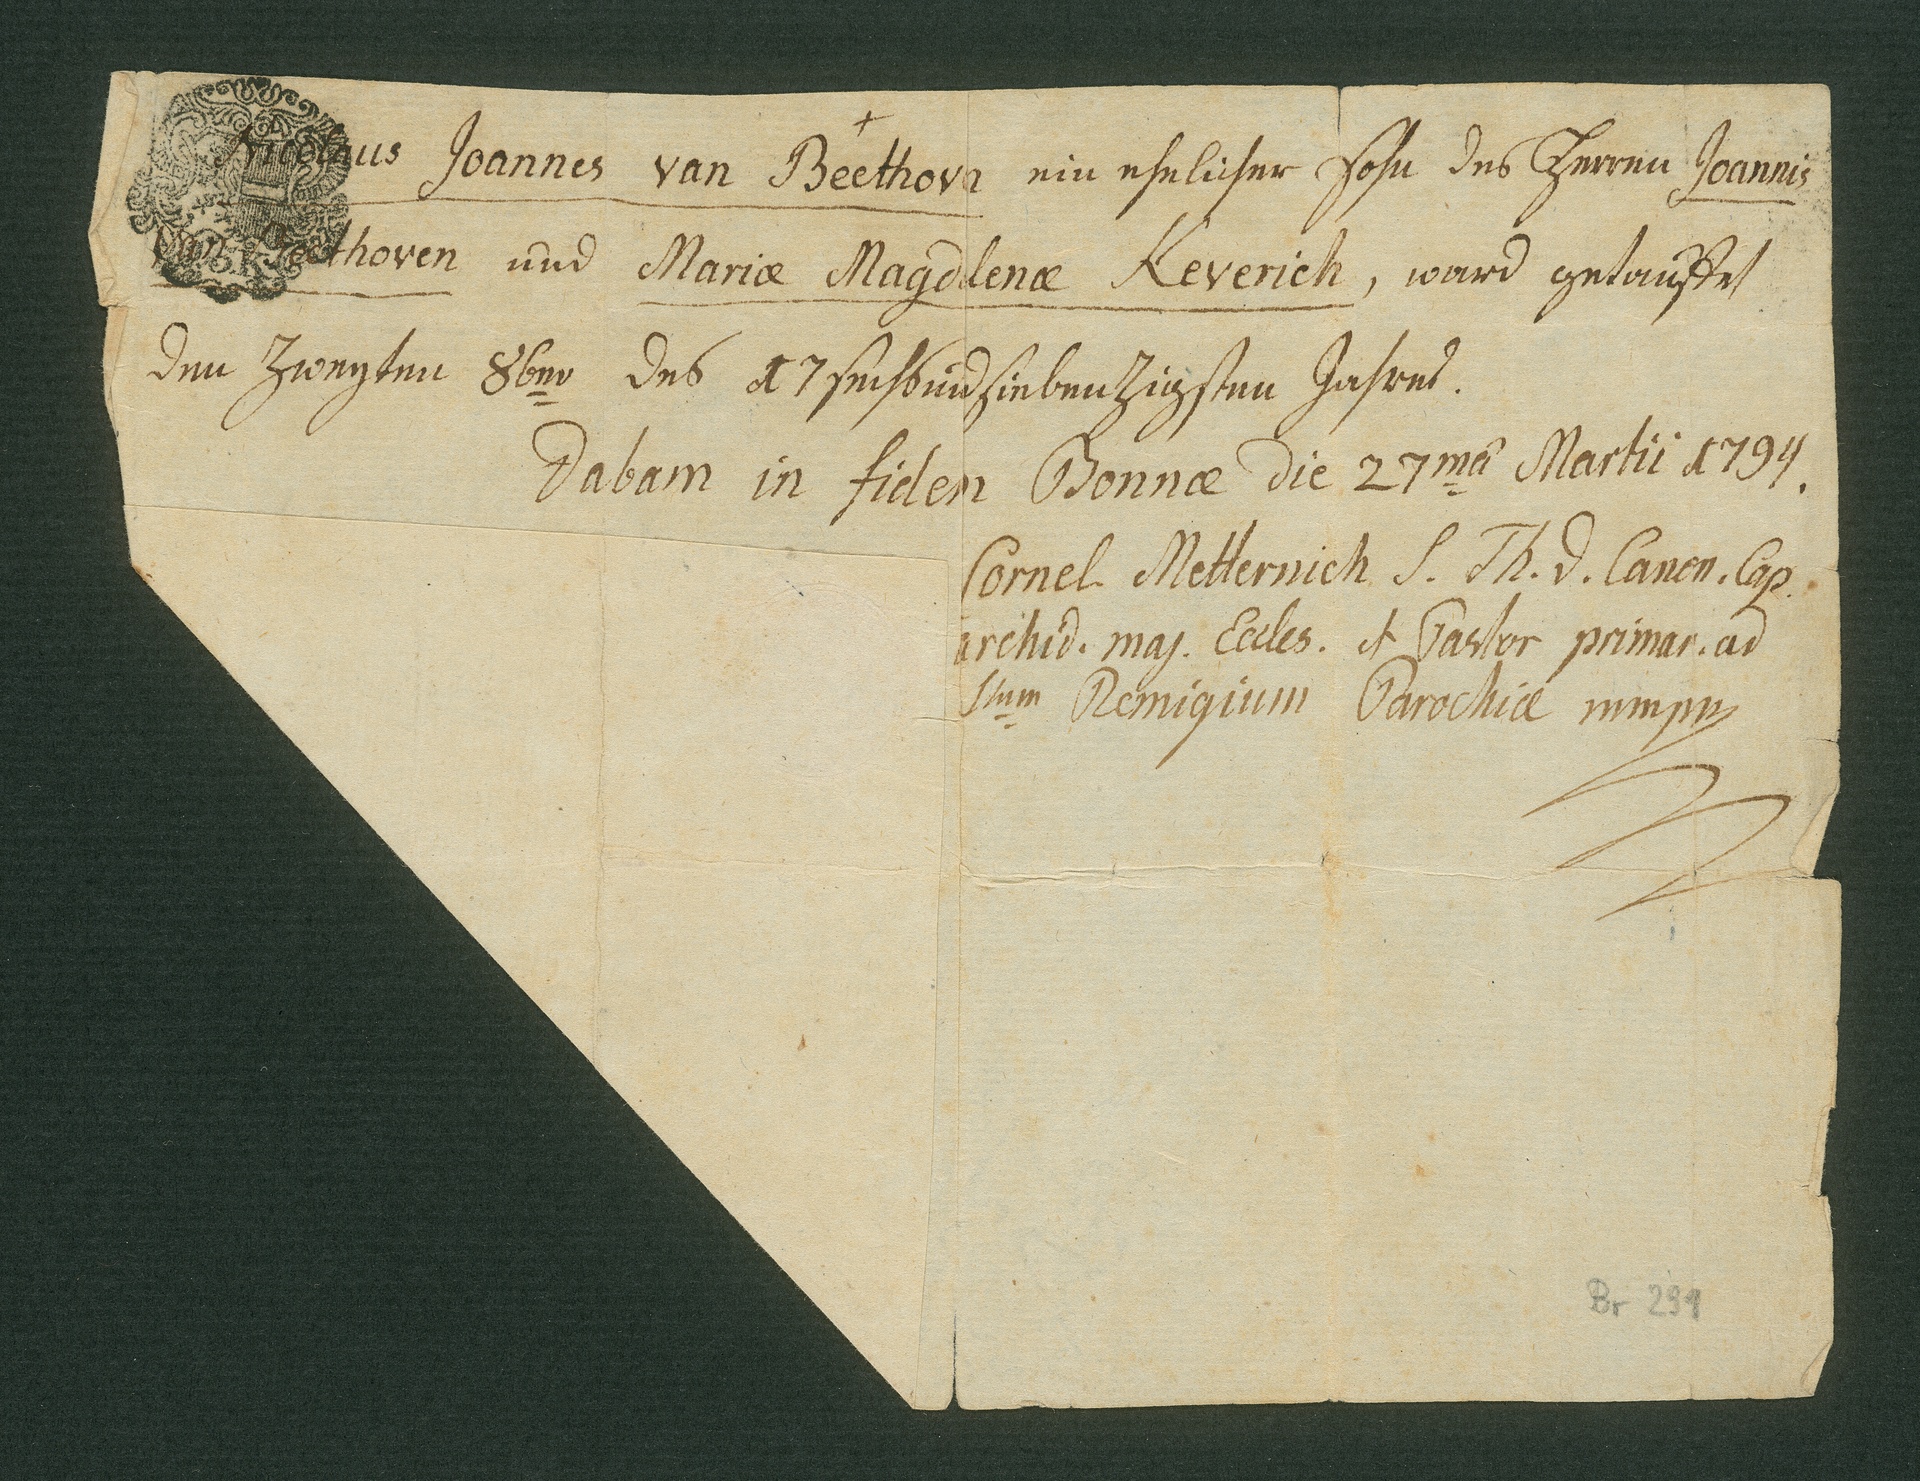 Nicolaus Joannes van Beethovn ein ehelicher Sohn des Herren Joannis
van Beethoven und Mariæ Magdlenæ Keverich, ward getauffet
den Zweyten 8ber des 17sechsundsiebenzigsten Jahres.
Dabam in fidem Bonnæ die 27ma Martii 1794.
Cornel. Metternich S. Th. D. Canon. Cap.
archid. maj. Eccles. et Pastor primar. ad
Stum Remigium Parochiæ mmpp
Br 291